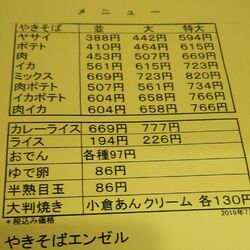 メニュー
やきそば 並 大 特大
ヤサイ 388円 442円 594円
ポテト 410円 464円 615円
肉 453円 507円 669円
イカ 561円 615円 723円
ミックス 669円 723円 820円
肉ポテト 507円 561円 734円
イカポテト 604円 658円 766円
肉イカ 604円 658円 766円
カレーライス 669円 777円
ライス 194円 226円
おでん 各種97円
ゆで卵 86円
半熟目玉 86円
大判焼き 小倉あんクリーム 各130円
*税込み価格 2019年
やきそばエンゼル